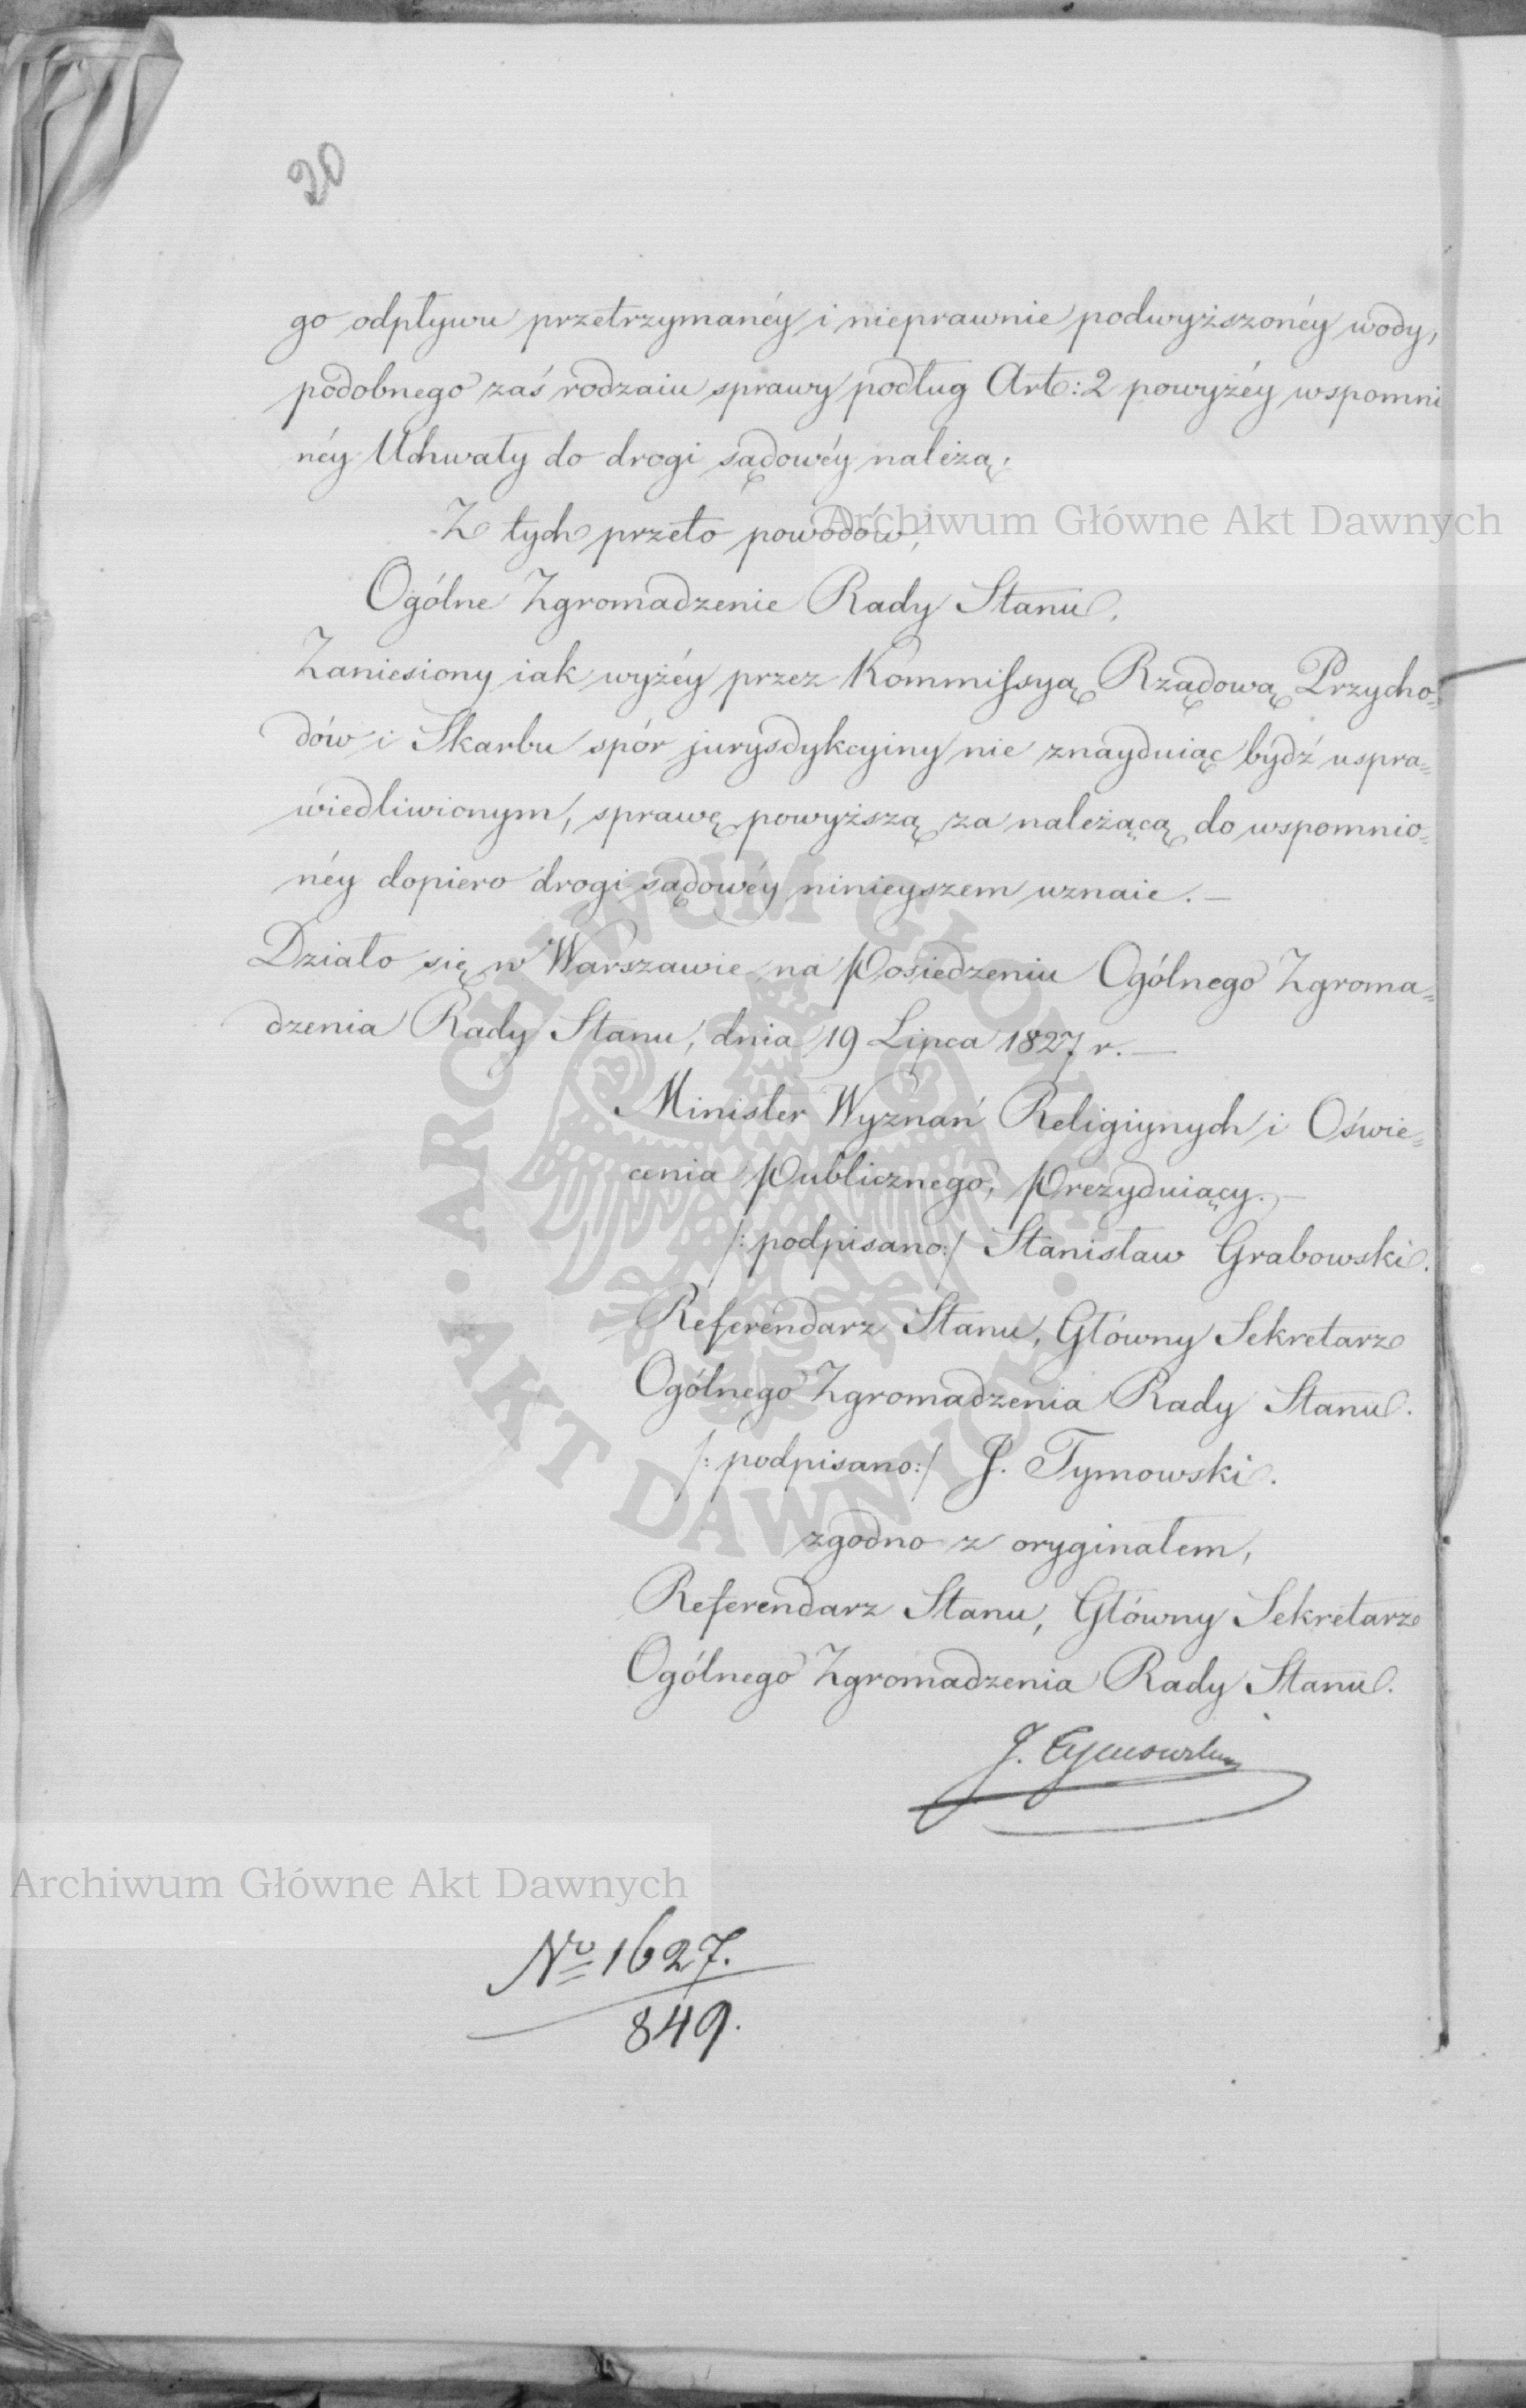 20
go odpływu przetrzymanéy i nieprawnie podwyższonéy wody,
podobnego zaś rodzaiu sprawy podług Art: 2 powyżéy wspomni
néy Uchwały do drogi sądowéy należą.
Z tych przeto powodów,
Archiwum Główne Akt Dawnych
Ogólne Zgromadzenie Rady Stanu.
Zaniesiony iak wyżéy przez Kommissyą Rządową Przycho=
dów i Skarbu spór jurysdykcyiny nie znayduiąc bydź uspra=
wiedliwionym, sprawę powyższą za należącą do wspomnio=
néy dopiero drogi sądowéy ninieyszem uznaie. –
Działo się w Warszawie na Posiedzeniu Ogólnego Zgroma=
dzenia Rady Stanu, dnia 19 Lipca 1827 r. –
Minister Wyznań Religiynych i Oświe=
cenia Publicznego, Prezyduiący. –
/: podpisano :/ Stanisław Grabowski.
Referendarz Stanu, Główny Sekretarz
Ogólnego Zgromadzenia Rady Stanu.
/: podpisano :/ J. Tymowski.
zgodno z oryginałem,
Referendarz Stanu, Główny Sekretarz
Ogólnego Zgromadzenia Rady Stanu.
J. Tymowski
ARCHIWUM GŁÓWNE · AKT DAWNYCH ·
Archiwum Główne Akt Dawnych
No 1627.
849.